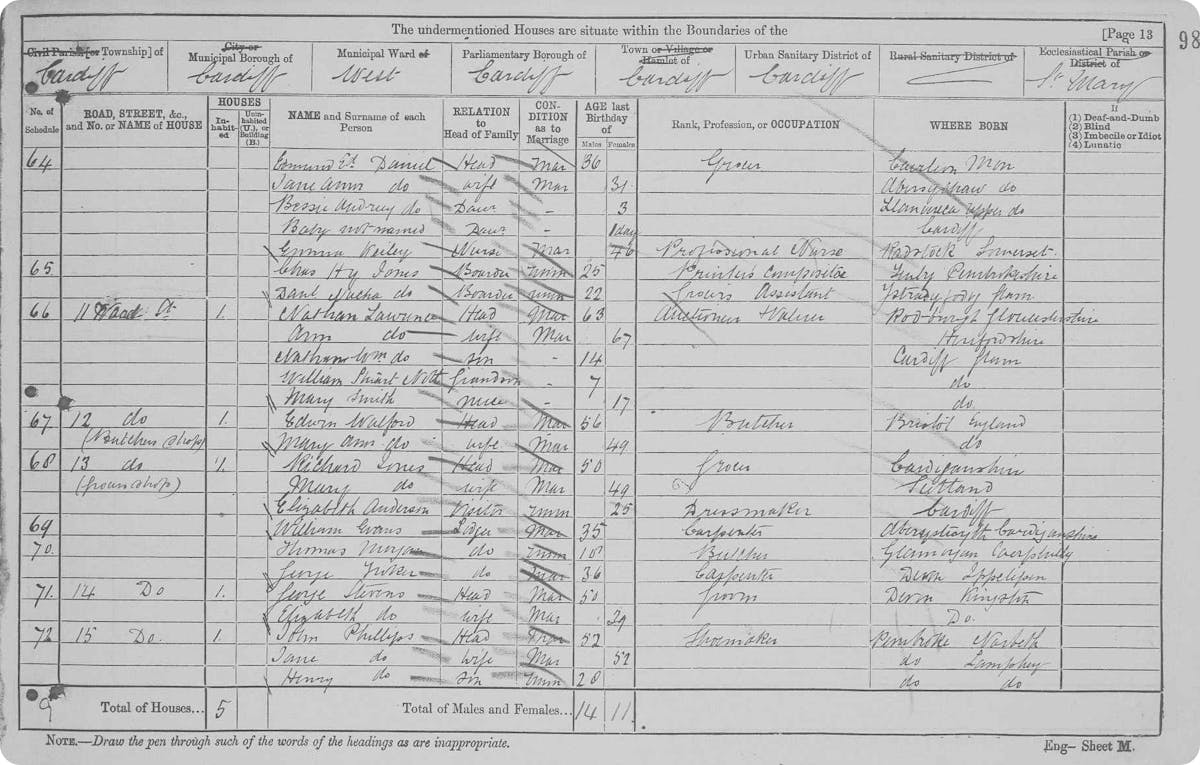 The undermentioned Houses are situate within the Boundaries of the [Page 13
98
Civil Parish [or Township] of City or Municipal Borough of Municipal Ward of Parliamentary Borough of Town or Village or Hamlet of Urban Sanitary District of Rural Sanitary District of Ecclesiastical Parish or District of
Cardiff Cardiff West Cardiff Cardiff Cardiff St. Mary
No. of Schedule ROAD, STREET, &c., and No. or NAME of HOUSE HOUSES In-habit-ed Unin-habited (U.), or Building (B.) NAME and Surname of each Person RELATION to Head of Family CON-DITION as to Marriage AGE last Birthday of Males Females Rank, Profession, or OCCUPATION WHERE BORN If (1) Deaf-and-Dumb (2) Blind (3) Imbecile or Idiot (4) Lunatic
64 Edmund Daniel Head Mar 36 Grocer Caerleon Mon
Jane Ann do wife Mar 31 do
Bessie Audrey do Daur - 3 upper do
Baby not named Daur - 1 day Cardiff
Emma Nurse Mar 46 Professional Nurse Radstock Somerset
65 Chas Hy Jones Boarder Unm 25 Printers Compositor Pembrokeshire
do Boarder Unm 22 Grocers Assistant Glam
66 11 Wood St 1. Nathan Lawrence Head Mar 63 Auctioneer Valuer Gloucestershire
Ann do wife Mar 67 Herefordshire
Nathan Wm do Son - 14 Cardiff Glam
William Stuart Grandson - 7 do
Mary Smith niece - 17 do
67 12 do 1. Edwin Walford Head Mar 56 Butcher Bristol England
(Butchers shop) Mary Ann do wife Mar 49 do
68 13 do 1. Richard Jones Head Mar 50 Grocer Cardiganshire
(Grocers shop) Mary do wife Mar 49
Elizabeth Anderson Visitor Unm 25 Dressmaker Cardiff
69 William Evans Lodger Mar 35 Carpenter Aberystwyth Cardiganshire
70. Thomas Morgan do Unm 18 Butcher Glamorgan Caerphilly
George do Mar 36 Carpenter Devon Ippelipen
71. 14 Do 1. George Stevens Head Mar 50 Groom Devon
Elizabeth do wife Mar Do.
72 15 Do. 1. John Phillips Head Mar 52 Shoemaker Pembroke Narbeth
Jane do wife Mar 52 do Lamphey
Henry do Son Unm 28 do do
9 Total of Houses... 5 Total of Males and Females... 14 11.
NOTE.—Draw the pen through such of the words of the headings as are inappropriate.
Eng- Sheet M.